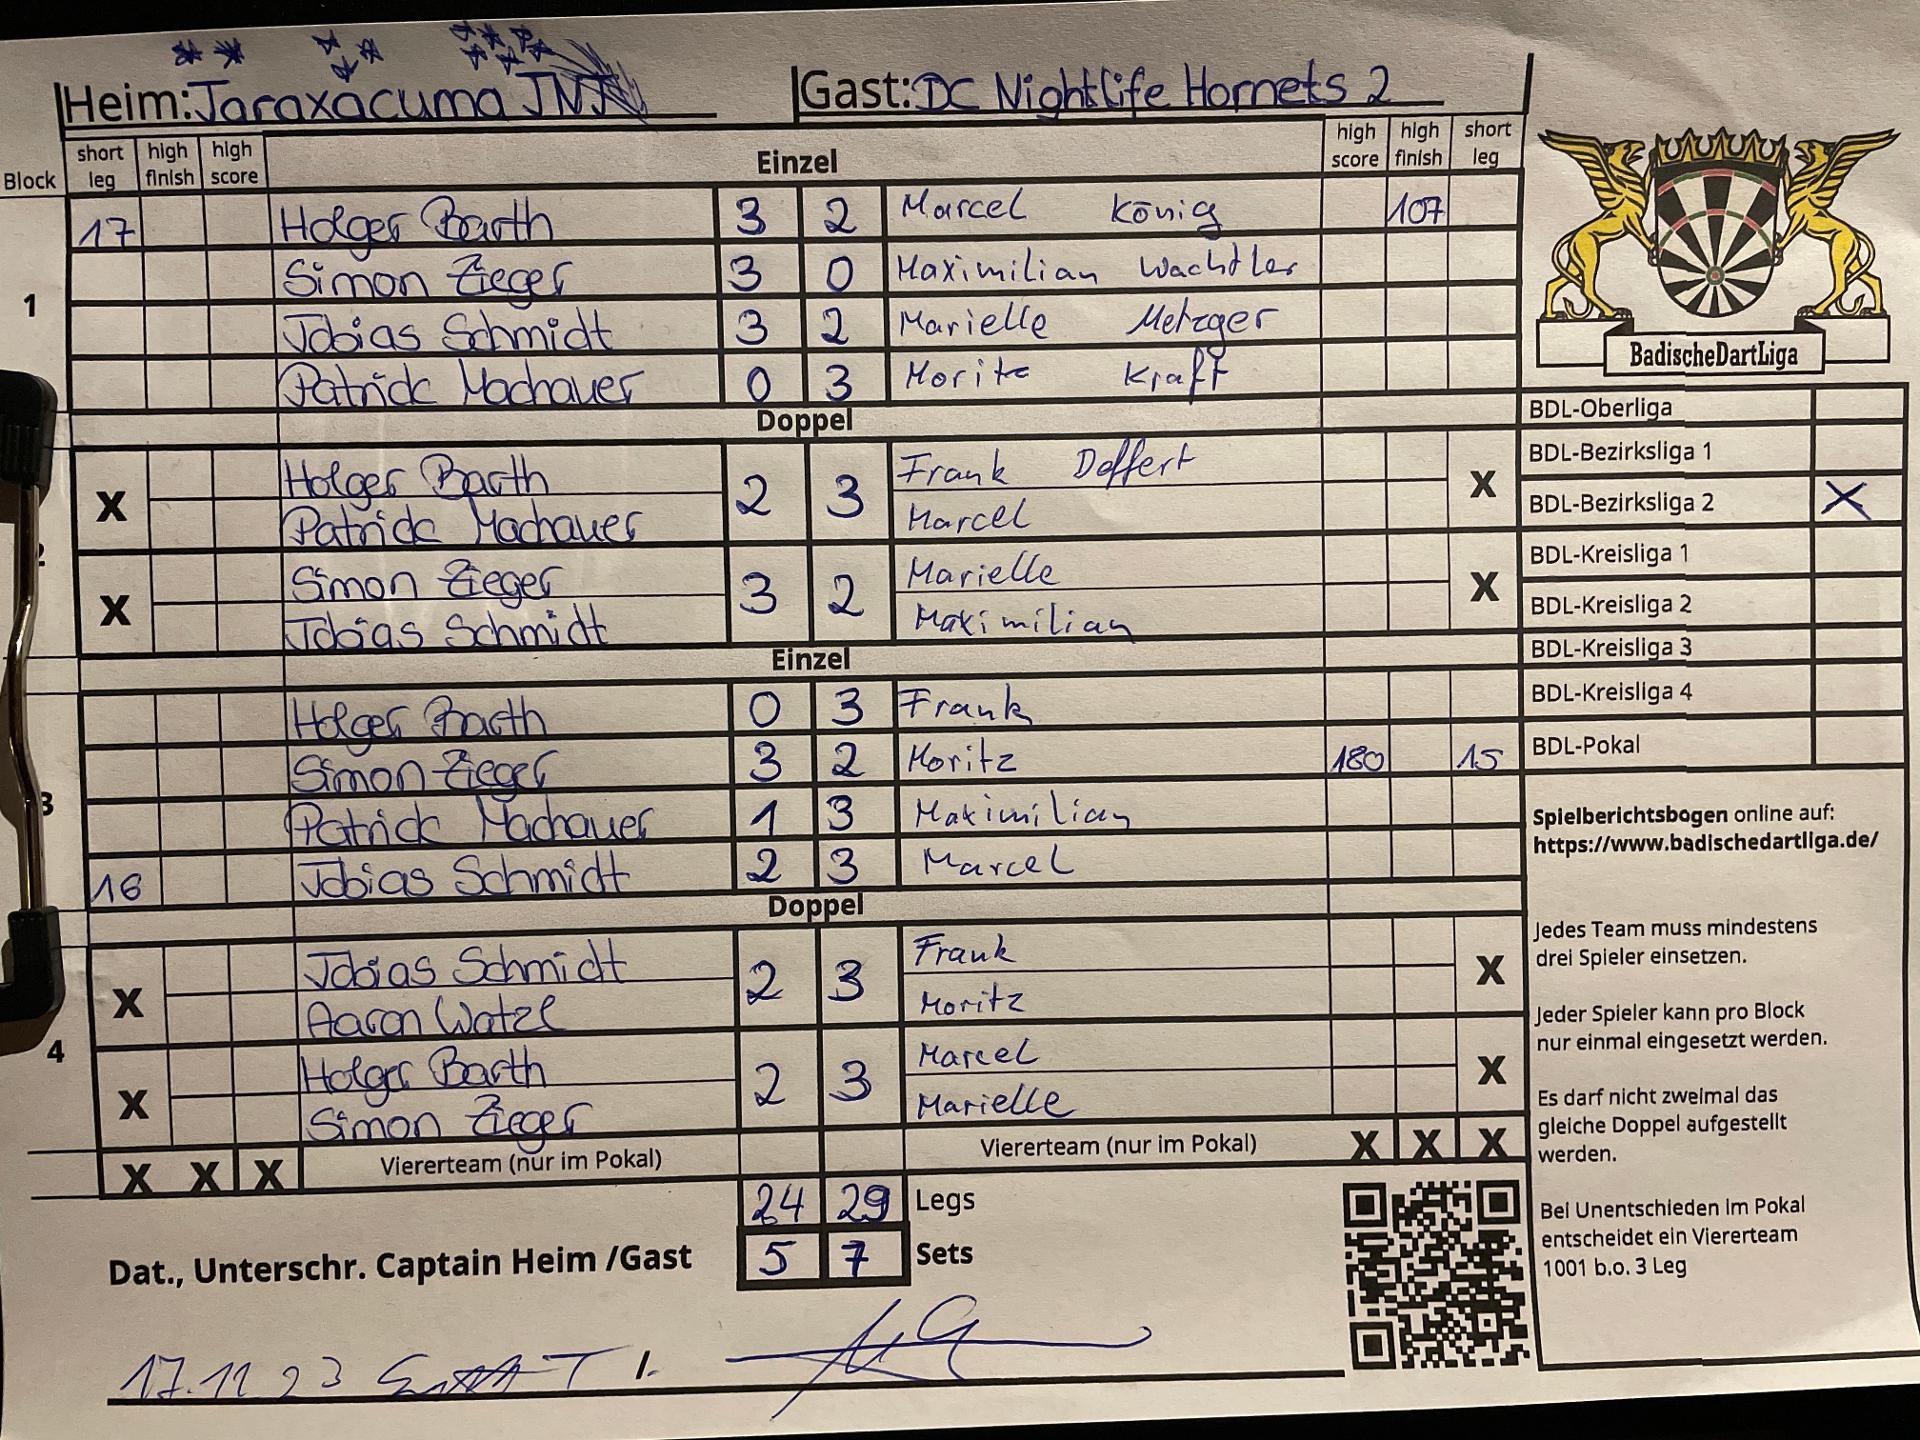 Heim: Taraxacuma TNT Gast: DC Nightlife Hornets 2
Block short leg high finish high score Einzel high score high finish short leg
1
17 Holger Barth 3 2 Marcel König 107
Simon Zieger 3 0 Maximilian Wachtler
Tobias Schmidt 3 2 Marielle Metzger
Patrick Machauer 0 3 Moritz Kraft
Doppel
2
X Holger Barth 2 3 Frank Deffert X
Patrick Machauer Marcel
X Simon Zieger 3 2 Marielle X
Tobias Schmidt Maximilian
Einzel
3
Holger Barth 0 3 Frank
Simon Zieger 3 2 Moritz 180 15
Patrick Machauer 1 3 Maximilian
16 Tobias Schmidt 2 3 Marcel
Doppel
4
X Tobias Schmidt 2 3 Frank X
Aaron Watzl Moritz
X Holger Barth 2 3 Marcel X
Simon Zieger Marielle
X X X Viererteam (nur im Pokal) Viererteam (nur im Pokal) X X X
24 29 Legs
5 7 Sets
Dat., Unterschr. Captain Heim /Gast
17.11.23 /
BadischeDartLiga
BDL-Oberliga
BDL-Bezirksliga 1
BDL-Bezirksliga 2 X
BDL-Kreisliga 1
BDL-Kreisliga 2
BDL-Kreisliga 3
BDL-Kreisliga 4
BDL-Pokal
Spielberichtsbogen online auf:
https://www.badischedartliga.de/
Jedes Team muss mindestens
drei Spieler einsetzen.
Jeder Spieler kann pro Block
nur einmal eingesetzt werden.
Es darf nicht zweimal das
gleiche Doppel aufgestellt
werden.
Bei Unentschieden im Pokal
entscheidet ein Viererteam
1001 b.o. 3 Leg